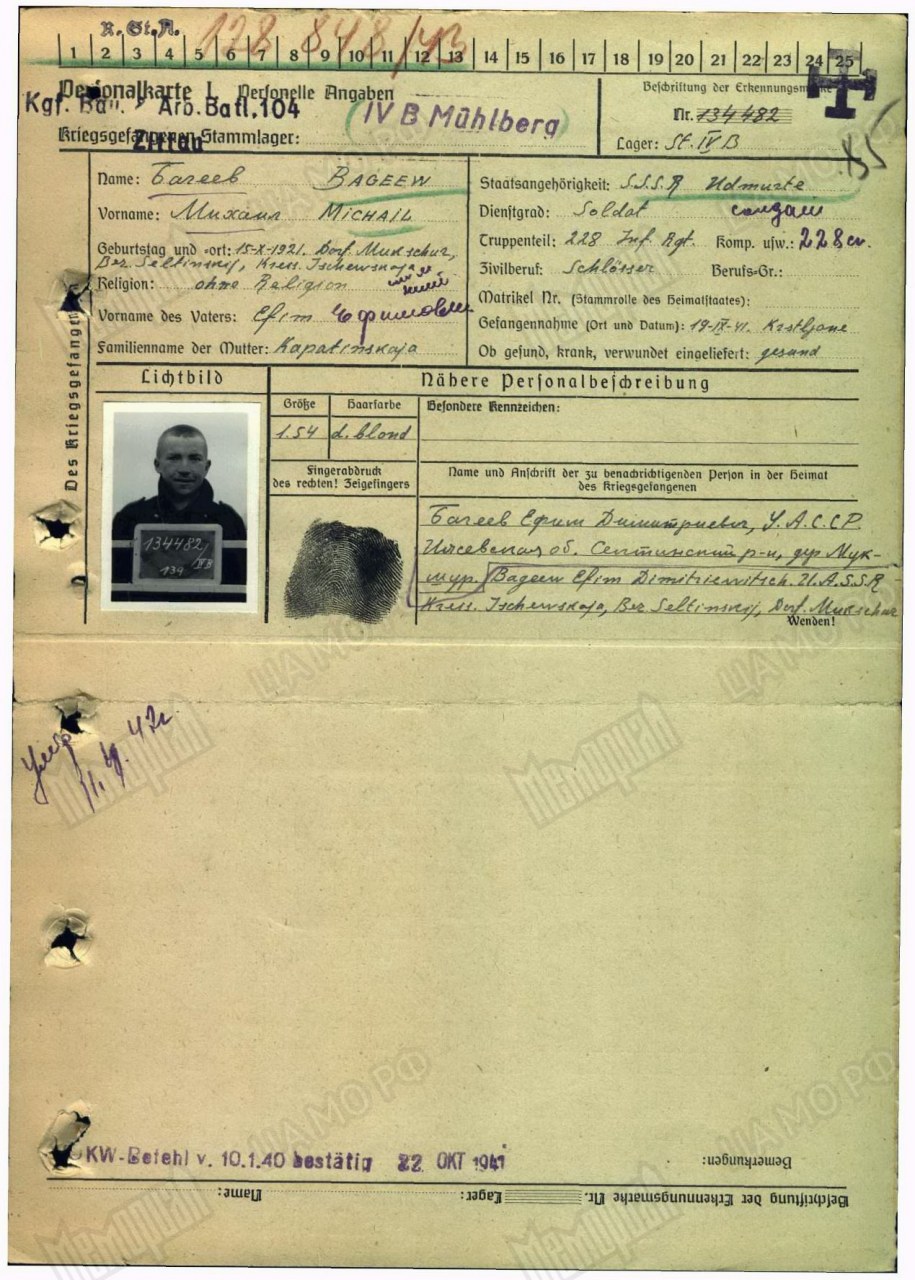 R.St.A. 128 848/43
1 2 3 4 5 6 7 8 9 10 11 12 13 14 15 16 17 18 19 20 21 22 23 24 25
Personalkarte I: Personelle Angaben
Kgf. Bau. u. Arb. Batl. 104
Zittau
Kriegsgefangenen-Stammlager:
IV B Mühlberg
Beschriftung der Erkennungsmarke
Nr. 134482
Lager: St. IV B
Des Kriegsgefangenen
Name: Багеев BAGEEW
Vorname: Михаил MICHAIL
Geburtstag und -ort: 15-X-1921. Dorf. Mukschur,
Bez. Seltinskij, Kreis. Ischewskaja
Religion: ohne Religion
Vorname des Vaters: Efim Ефимович
Familienname der Mutter: Kapatinskaja
Staatsangehörigkeit: S.S.S.R Udmurte
Dienstgrad: Soldat солдат
Truppenteil: 228 Inf. Rgt. Komp. usw.: 228 сп.
Zivilberuf: Schlosser Berufs-Gr.:
Matrikel Nr. (Stammrolle des Heimatstaates):
Gefangennahme (Ort und Datum): 19-IX-41.
Ob gesund, krank, verwundet eingeliefert: gesund
Lichtbild
Nähere Personalbeschreibung
Größe Haarfarbe Besondere Kennzeichen:
1.54 d. blond
Fingerabdruck
des rechten! Zeigefingers
Name und Anschrift der zu benachrichtigenden Person in der Heimat
des Kriegsgefangenen
134482
134 IV B
Багеев Ефим Димитриевич, У.А.С.С.Р.
Ижевская об. Селтинский р-н, дер Мук-
шур. Bageew Efim Dimitriewitsch. U.A.S.S.R
Kreis. Ischewskaja, Bez. Seltinskij, Dorf. Mukschur
Wenden!
Умер
11.4.42г.
OKW-Befehl v. 10.1.40 bestätig 22. OKT 1941
Bemerkungen:
Beschriftung der Erkennungsmarke Nr. Lager: Name:
Мемориал
ЦАМО РФ